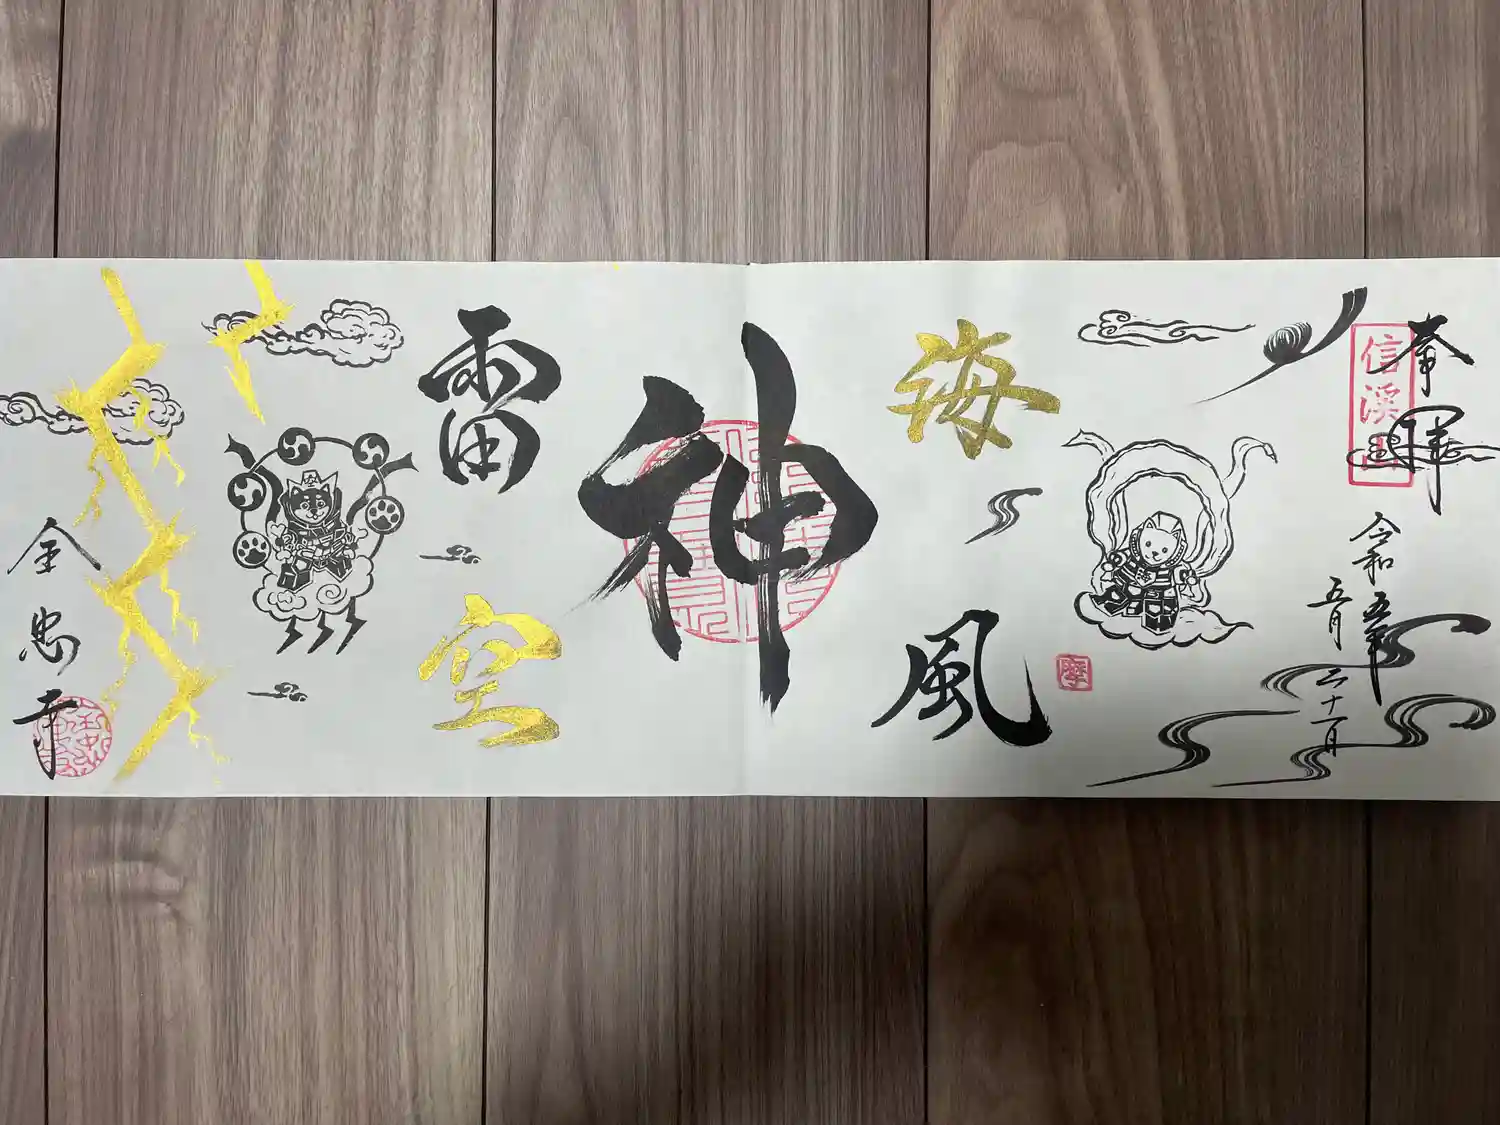 奉拝
信溪山
令和五年
五月二十一日
海
風
摩
神
雷
空
全忠寺